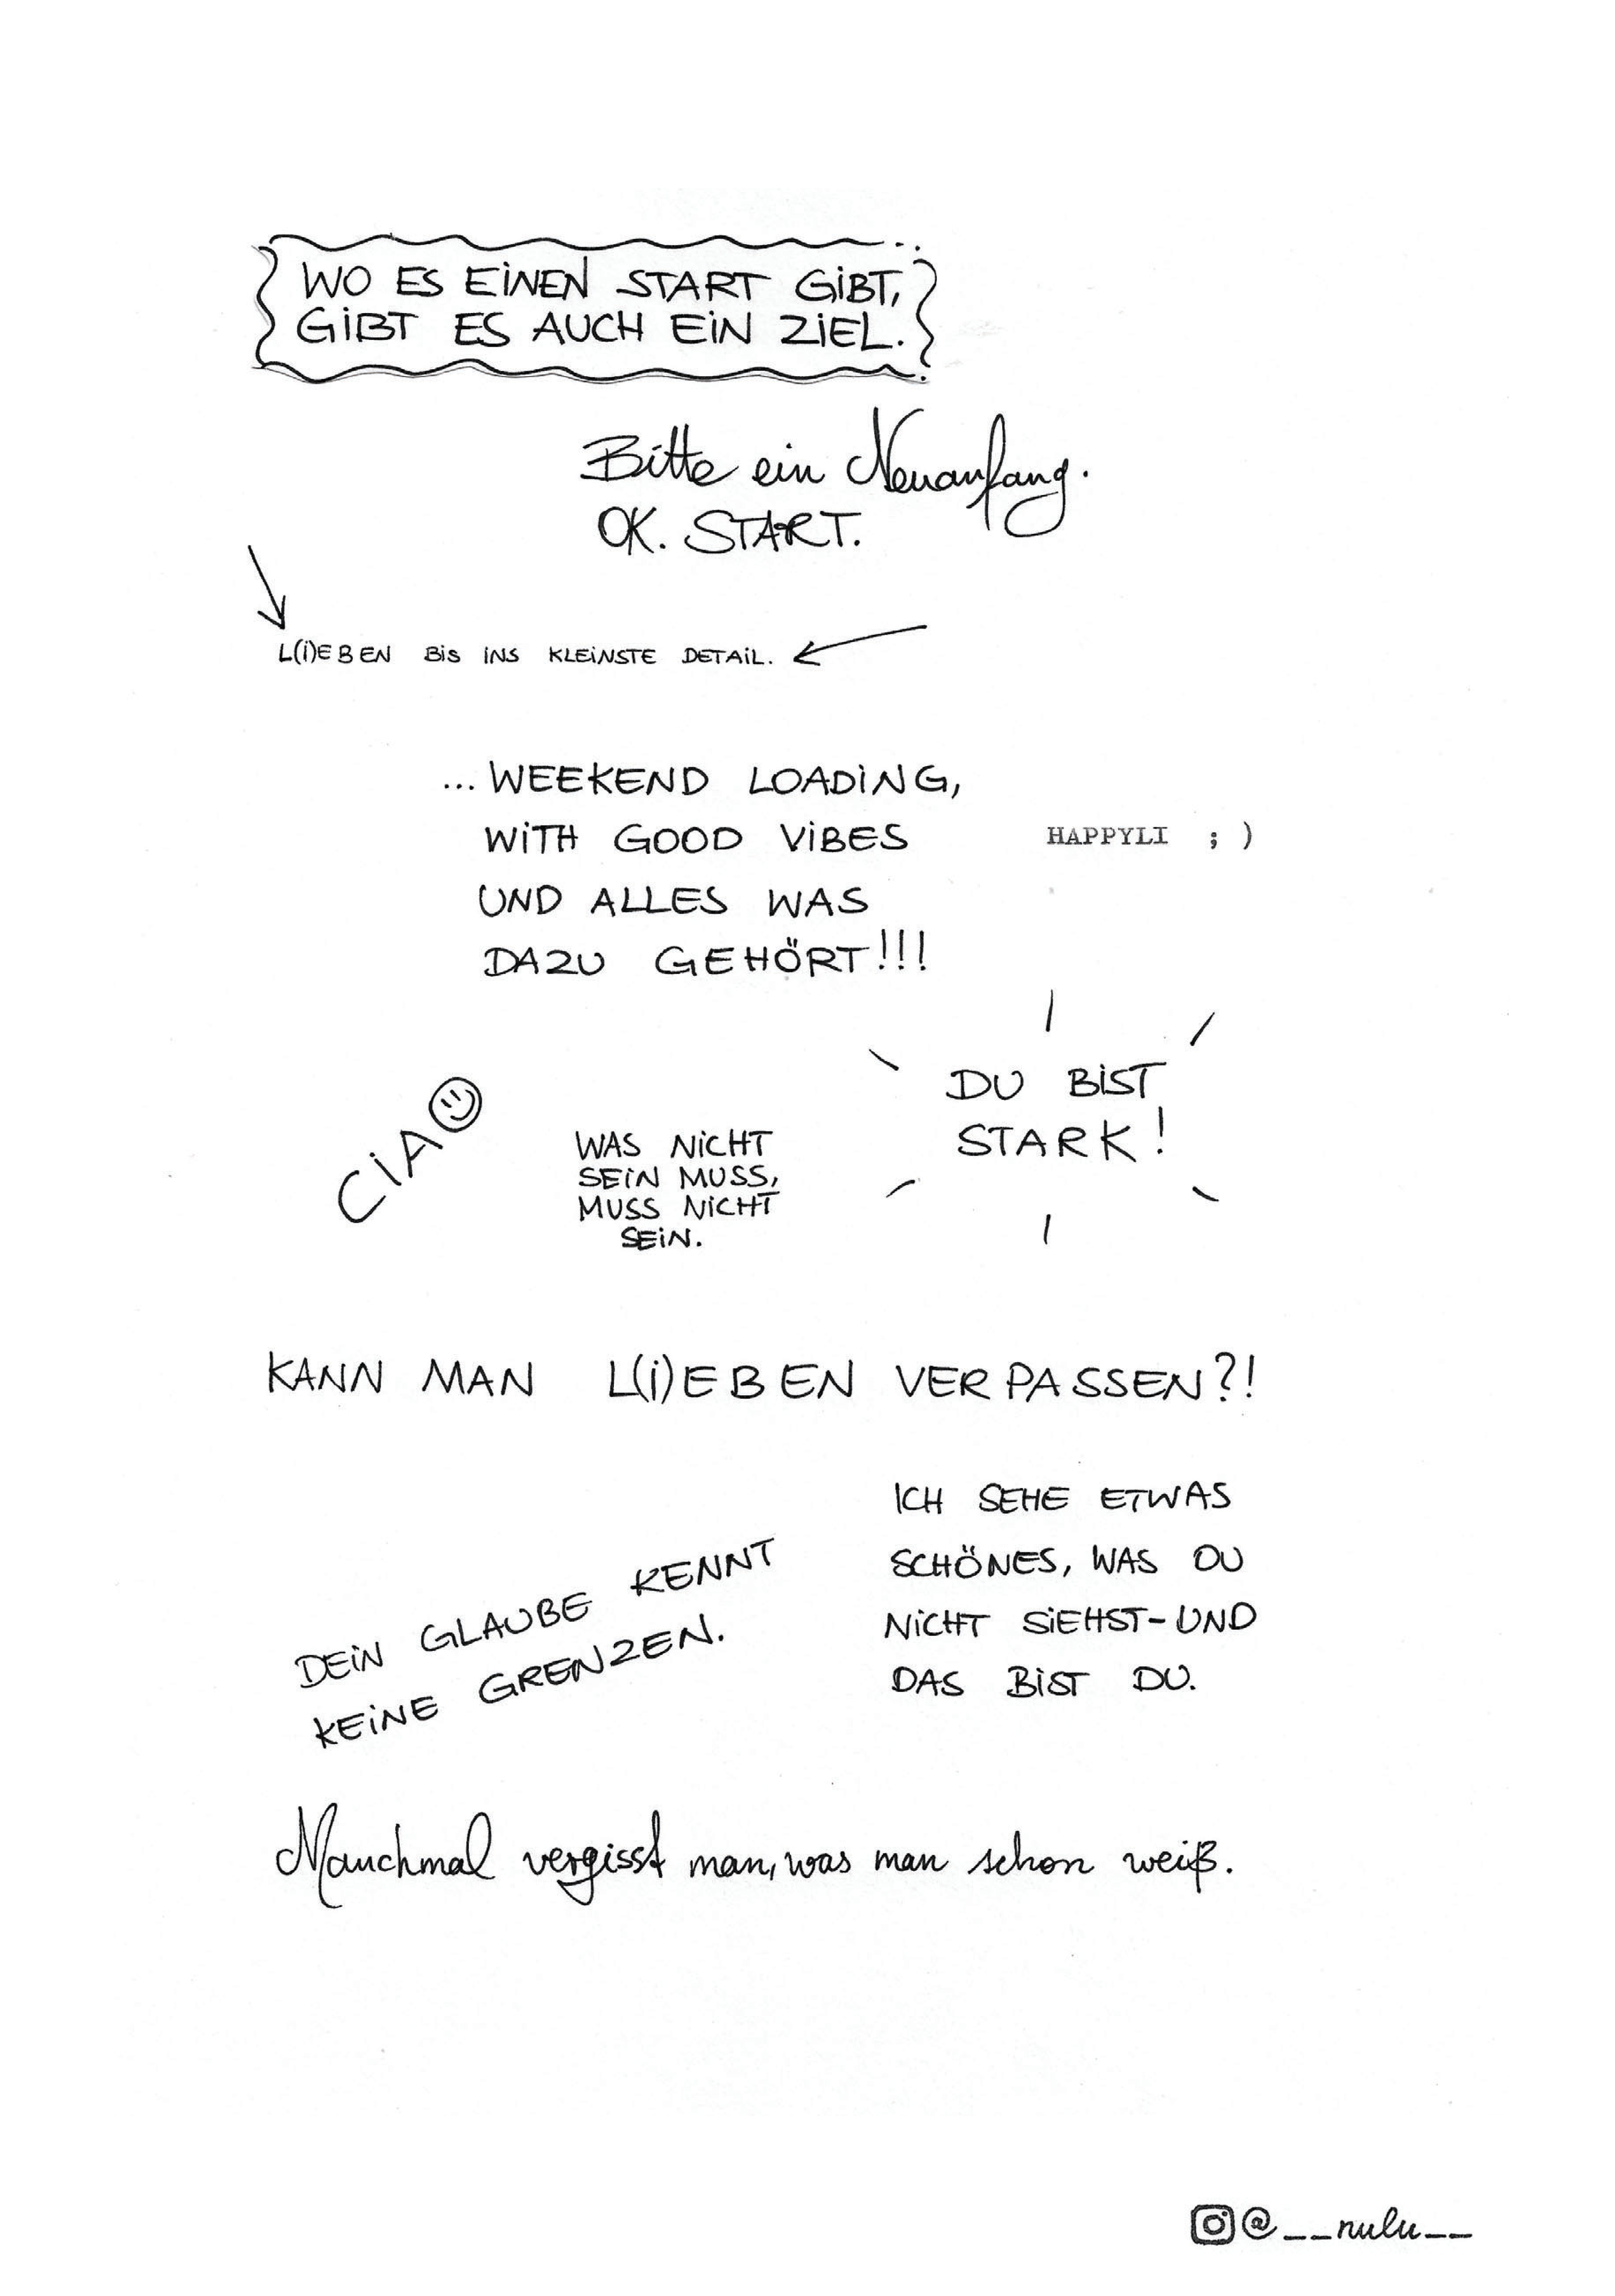 WO ES EINEN START GIBT,
GIBT ES AUCH EIN ZIEL.
Bitte ein Neuanfang.
OK. START.
L(i)EBEN BIS INS KLEINSTE DETAIL.
... WEEKEND LOADING,
WITH GOOD VIBES
HAPPYLI ; )
UND ALLES WAS
DAZU GEHÖRT!!!
DU BIST
STARK!
CIAO
WAS NICHT
SEIN MUSS,
MUSS NICHT
SEIN.
KANN MAN L(i)EBEN VERPASSEN?!
ICH SEHE ETWAS
SCHÖNES, WAS DU
NICHT SIEHST-UND
DAS BIST DU.
DEIN GLAUBE KENNT
KEINE GRENZEN.
Manchmal vergisst man, was man schon weiß.
@__nulu__